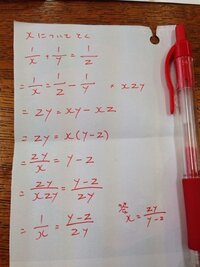 xについてとく
1/x + 1/y = 1/z
= 1/x = 1/z - 1/y × xzy
= zy = xy - xz
= zy = x(y-z)
= zy/x = y-z
= zy/xzy = y-z/zy
= 1/x = y-z/zy
x = zy/y-z